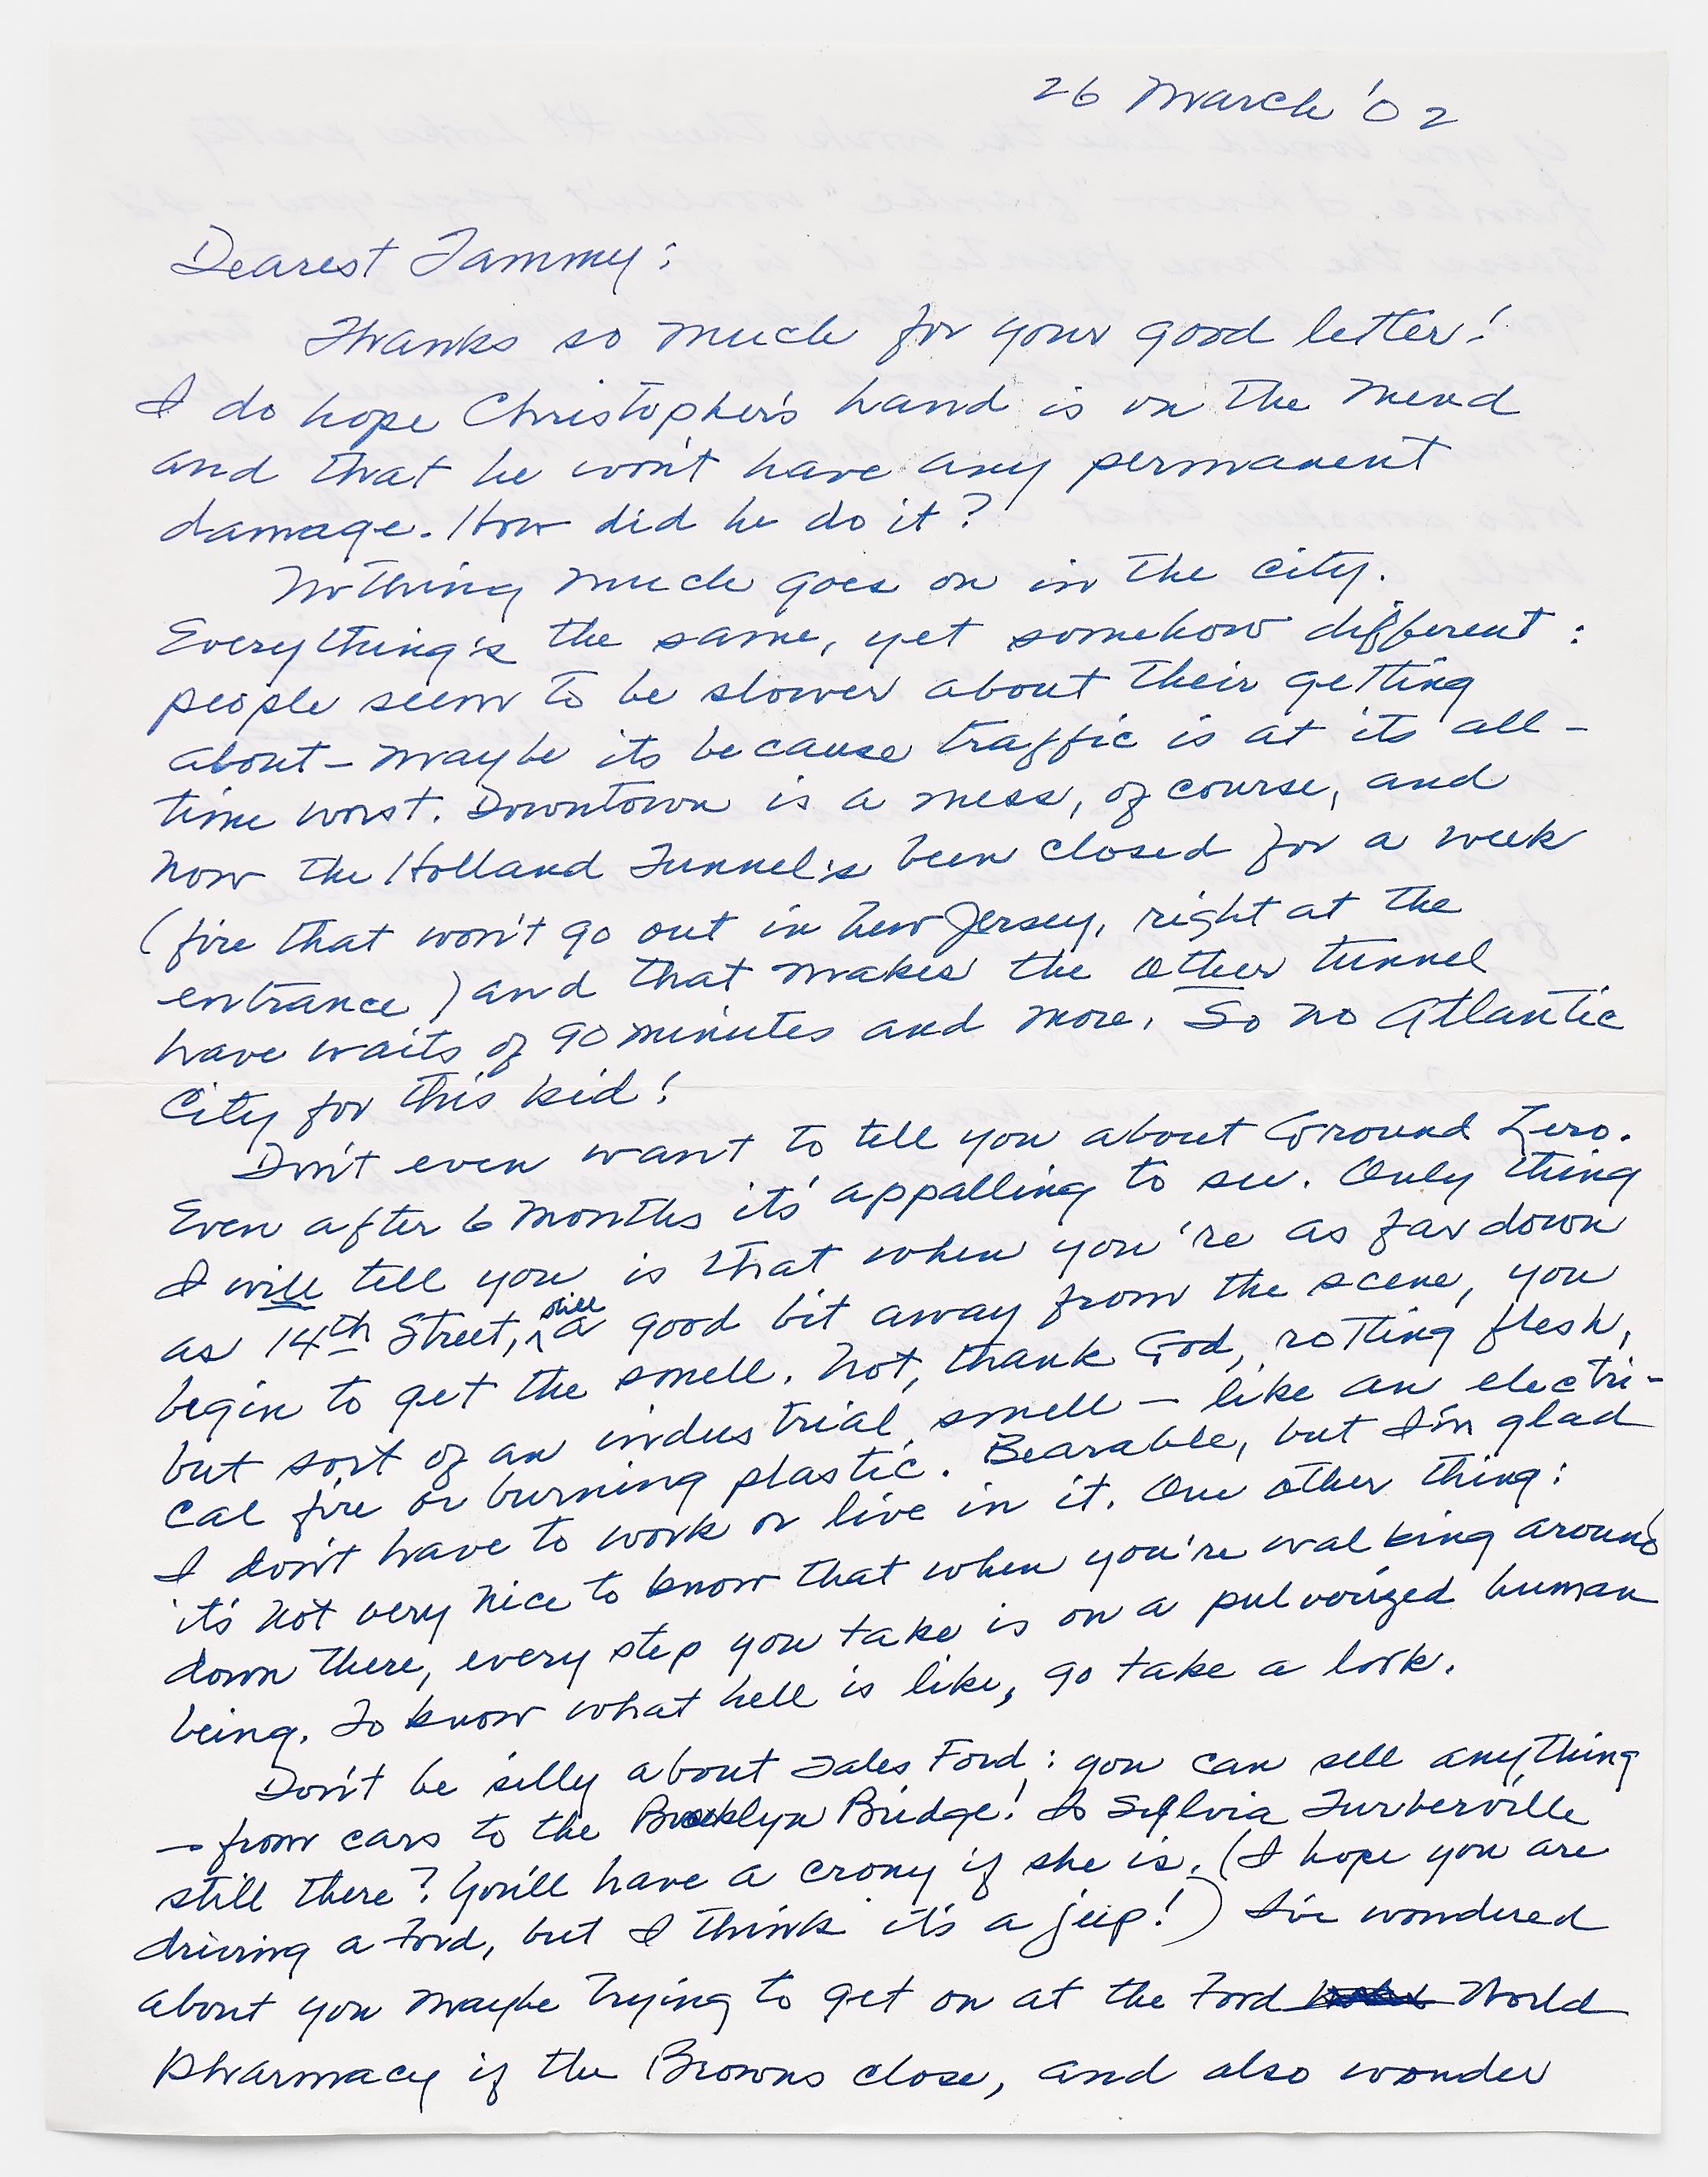 26 March '02
Dearest Tammy:
Thanks so much for your good letter!
I do hope Christopher's hand is on the mend
and that he won't have any permanent
damage. How did he do it?
Nothing much goes on in the city.
Everything's the same, yet somehow different:
people seem to be slower about their getting
about – maybe its because traffic is at its all-
time worst. Downtown is a mess, of course, and
now the Holland Tunnel's been closed for a week
(fire that won't go out in New Jersey, right at the
entrance) and that makes the other tunnel
have waits of 90 minutes and more. So no Atlantic
City for this kid!
Don't even want to tell you about Ground Zero.
Even after 6 months it's appalling to see. Only thing
I will tell you is that when you're as far down
as 14th Street, still a good bit away from the scene, you
begin to get the smell. Not, thank God, rotting flesh,
but sort of an industrial smell – like an electri-
cal fire or burning plastic. Bearable, but I'm glad
I don't have to work or live in it. One other thing:
it's not very nice to know that when you're walking around
down there, every step you take is on a pulverized human
being. To know what hell is like, go take a look.
Don't be silly about Sales Ford: you can sell anything
– from cars to the Brooklyn Bridge! Is Sylvia Turberville
still there? You'll have a crony if she is. (I hope you are
driving a Ford, but I think it's a jeep!) I've wondered
about you maybe trying to get on at the Ford World
Pharmacy if the Browns close, and also wonder